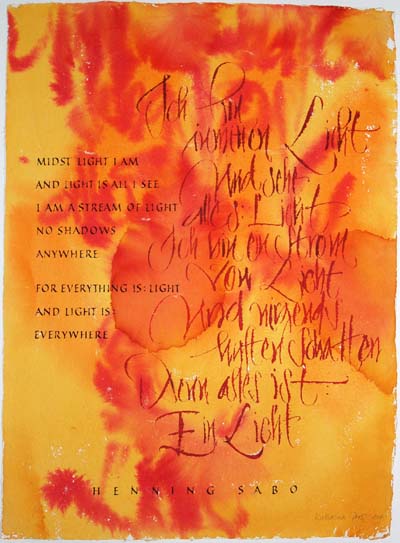 MIDST LIGHT I AM
AND LIGHT IS ALL I SEE
I AM A STREAM OF LIGHT
NO SHADOWS
ANYWHERE
FOR EVERYTHING IS: LIGHT
AND LIGHT IS:
EVERYWHERE
Ich bin
inmitten Licht
Und sehe:
alles: Licht
Ich bin ein Strom
von Licht
Und nirgends
Schatten
Denn alles ist:
Ein Licht
HENNING SABO